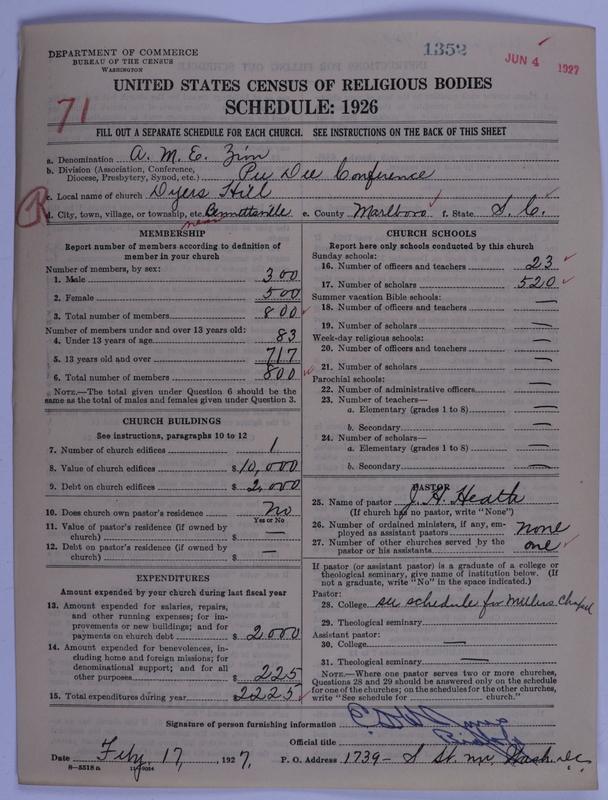 DEPARTMENT OF COMMERCE
BUREAU OF THE CENSUS
WASHINGTON
1352
JUN 4 1927
71
UNITED STATES CENSUS OF RELIGIOUS BODIES
SCHEDULE: 1926
FILL OUT A SEPARATE SCHEDULE FOR EACH CHURCH. SEE INSTRUCTIONS ON THE BACK OF THIS SHEET
a. Denomination A. M. E. Zion
b. Division (Association, Conference, Diocese, Presbytery, Synod, etc.) Pee Dee Conference
R
c. Local name of church Dyers Hill
d. City, town, village, or township, etc. Bennettsville e. County Marlboro f. State S. C.
near
MEMBERSHIP
Report number of members according to definition of member in your church
Number of members, by sex:
1. Male 300
2. Female 500
3. Total number of members 800
Number of members under and over 13 years old:
4. Under 13 years of age 83
5. 13 years old and over 717
6. Total number of members 800
NOTE.—The total given under Question 6 should be the same as the total of males and females given under Question 3.
CHURCH BUILDINGS
See instructions, paragraphs 10 to 12
7. Number of church edifices 1
8. Value of church edifices $10,000
9. Debt on church edifices $2,000
10. Does church own pastor's residence No
Yes or No
11. Value of pastor's residence (if owned by church) $ —
12. Debt on pastor's residence (if owned by church) $ —
EXPENDITURES
Amount expended by your church during last fiscal year
13. Amount expended for salaries, repairs, and other running expenses; for improvements or new buildings; and for payments on church debt $2000
14. Amount expended for benevolences, including home and foreign missions; for denominational support; and for all other purposes $225
15. Total expenditures during year $2225
CHURCH SCHOOLS
Report here only schools conducted by this church
Sunday schools:
16. Number of officers and teachers 23
17. Number of scholars 520
Summer vacation Bible schools:
18. Number of officers and teachers —
19. Number of scholars —
Week-day religious schools:
20. Number of officers and teachers —
21. Number of scholars —
Parochial schools:
22. Number of administrative officers —
23. Number of teachers—
a. Elementary (grades 1 to 8) —
b. Secondary —
24. Number of scholars—
a. Elementary (grades 1 to 8) —
b. Secondary —
PASTOR
25. Name of pastor J. H. Heath
(If church has no pastor, write "None")
26. Number of ordained ministers, if any, employed as assistant pastors none
27. Number of other churches served by the pastor or his assistants one
If pastor (or assistant pastor) is a graduate of a college or theological seminary, give name of institution below. (If not a graduate, write "No" in the space indicated.)
Pastor:
28. College see schedule for Millers Chapel
29. Theological seminary
Assistant pastor:
30. College —
31. Theological seminary —
NOTE.—Where one pastor serves two or more churches, Questions 28 and 29 should be answered only on the schedule for one of the churches; on the schedules for the other churches, write "See schedule for church."
Signature of person furnishing information
Official title
Date Feby. 17, 1927. P. O. Address 1739 - S St. nw. Wash. D.C.
8—5518 a